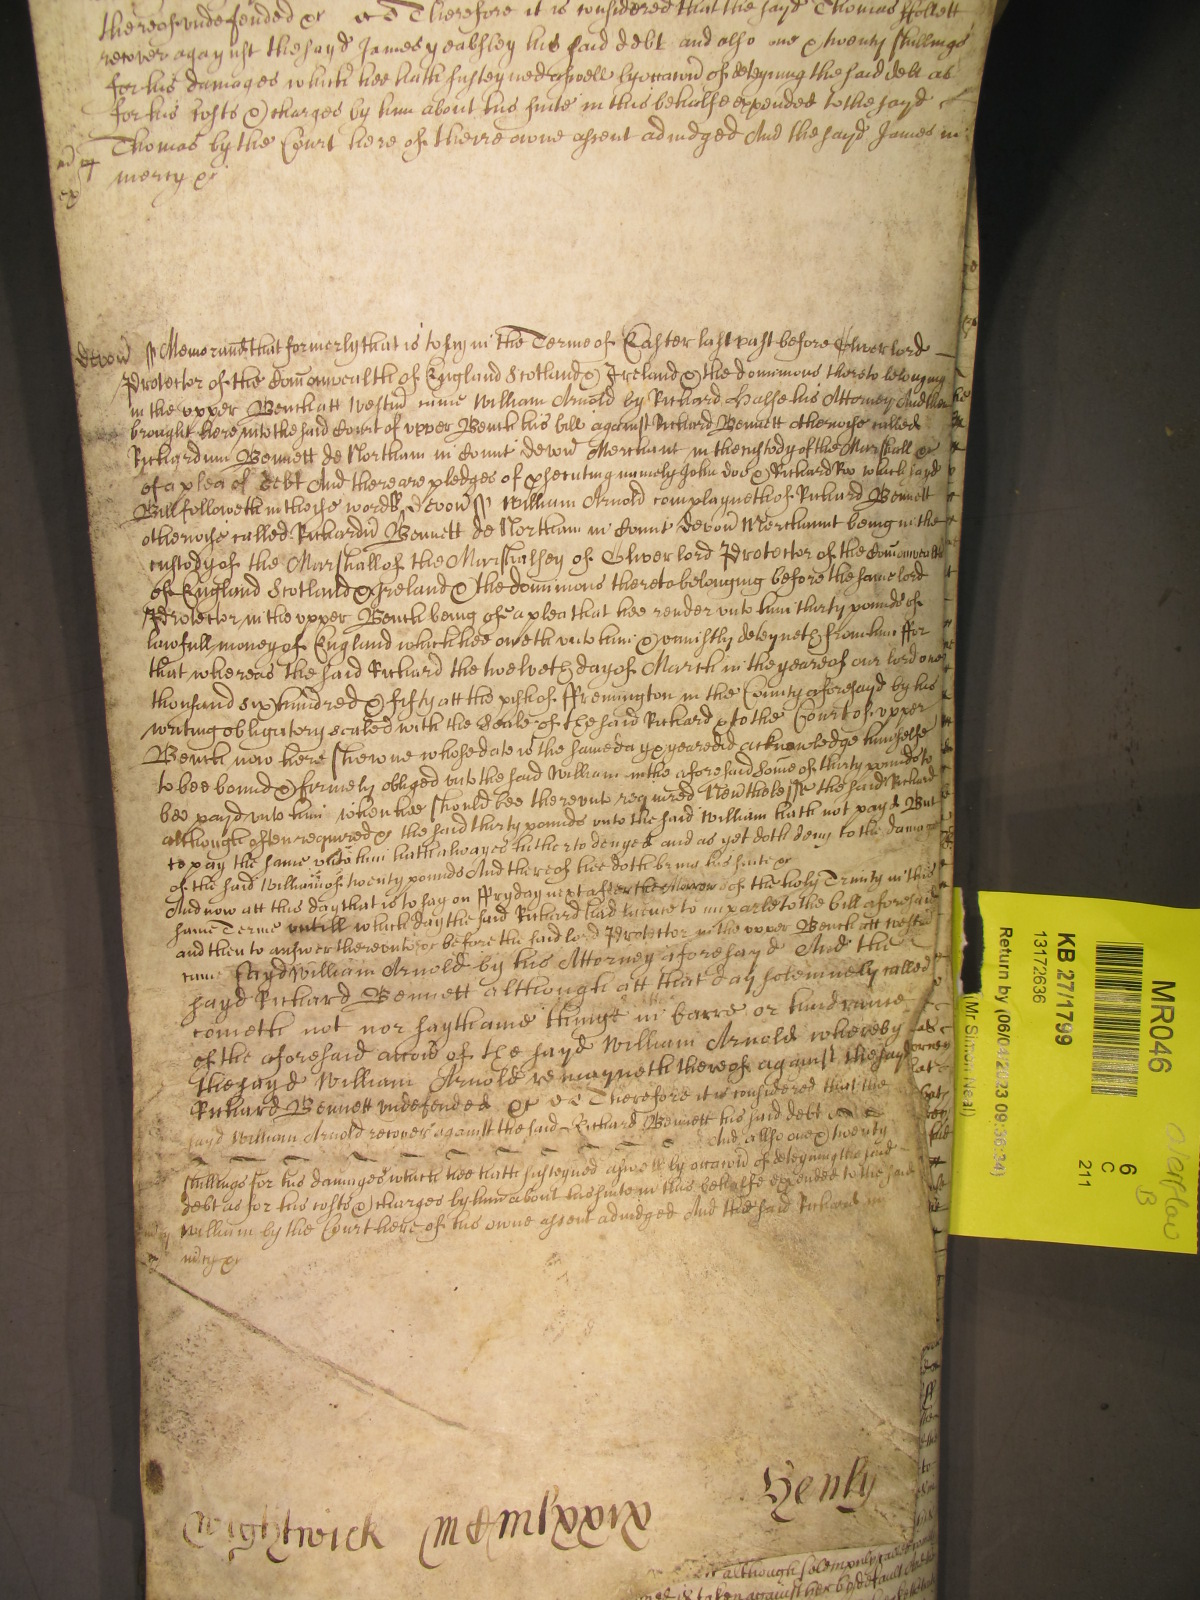 thereof undefended &c Therefore it is considered that the sayd Thomas ffollett
recover agaynst the sayd James yeabsley his said debt and also one & twenty shillings
for his damages which hee hath susteyned aswell by occacōn of deteyning the said debt as
for his costs & charges by him about his suite in this behalfe expended to the sayd
Thomas by the Court here of theire owne assent adiudged And the sayd James in
mercy &c
Devoñ ss Memorand that formerly that is to say in the Terme of Easter last past before Oliver lord
Protector of the Comonwealth of England Scotland & Ireland & the dominions thereto belonging
in the upper Bench att Westm̃ came William Arnold by Richard Halse his Attorney And
brought here into the said Court of upper Bench his bill against Richard Bennett otherwise called
Richardum Bennett de Northam in Comit Devoñ Merchant in the custody of the Marshall &c
of a plea of debt And there are pledges of prosecuting namely John Doo & Richard Roo which sayd
Bill followeth in theise words Devoñ ss William Arnold complayneth of Richard Bennett
otherwise called Richardū Bennett de Northam in Comit Devoñ Merchant being in the
custody of the Marshall of the Marshallsey of Oliver lord Protector of the Comonwealth
of England Scotland & Ireland & the dominions thereto belonging before the same lord
Protector in the upper Bench being of a plea that hee render unto him thirty pounds of
lawfull money of England which hee oweth unto him & uniustly deteyneth from him ffor
that whereas the said Richard the twelveth day of March in the yeare of our lord one
thousand six hundred & fifty att the pish of ffremington in the County aforesayd by his
writing obligatory sealed with the Seale of the said Richard & to the Court of upper
Bench now here shewne whose date is the same day & yeare did acknowledge himselfe
to bee bound & firmely obliged unto the said William in the aforesaid some of thirty pounds to
bee payd unto him when hee should bee thereunto required Neverthelesse the said Richard
although often required &c the said thirty pounds unto the said William hath not payd But
to pay the same unto him hath alwayes hitherto denyed and as yet doth deny to the damage
of the said William of twenty pounds And thereof hee doth bring his suite &c
And now att this day that is to say on ffryday next after the Morrow of the holy Trinity in this
same Terme untill which day the said Richard had licence to imparle to the bill aforesaid
and then to answer thereunto &c before the said lord Protector in the upper Bench att Westm̃
came sayd William Arnold by his Attorney aforesayd And the
sayd Richard Bennett although att that day solemnely called
cometh not nor sayth anie thinge in barre or hindrance
of the aforesaid accōn of the sayd William Arnold whereby
the sayd William Arnold remayneth thereof against the sayd
Richard Bennett undefended &c Therefore it is considered that the
sayd William Arnold recover against the said Richard Bennett his said debt
And allso one & twenty
shillings for his damages which hee hath susteyned aswell by occacōn of deteyning the said
debt as for his costs & charges by him about his suite in this behalfe expended to the said
William by the Court here of his owne assent adiudged And the said Richard in
mercy &c
Wightwick mcmlxxix Henly
although solempnly called
is taken against her by default
MR046
KB 27/1799
13172636
Return by (06/04/2023 09:36:24)
(Mr Simon Neal)
6
C
211